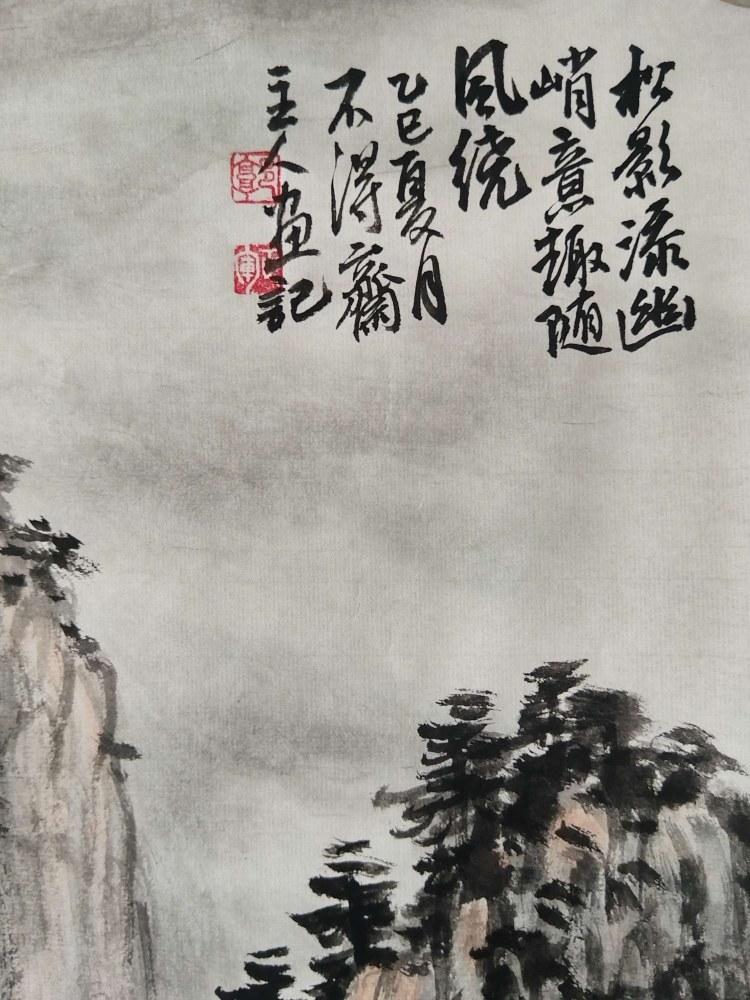 松影添幽
峭意趣随
風绕
乙巳夏月
不得齋
主人画記